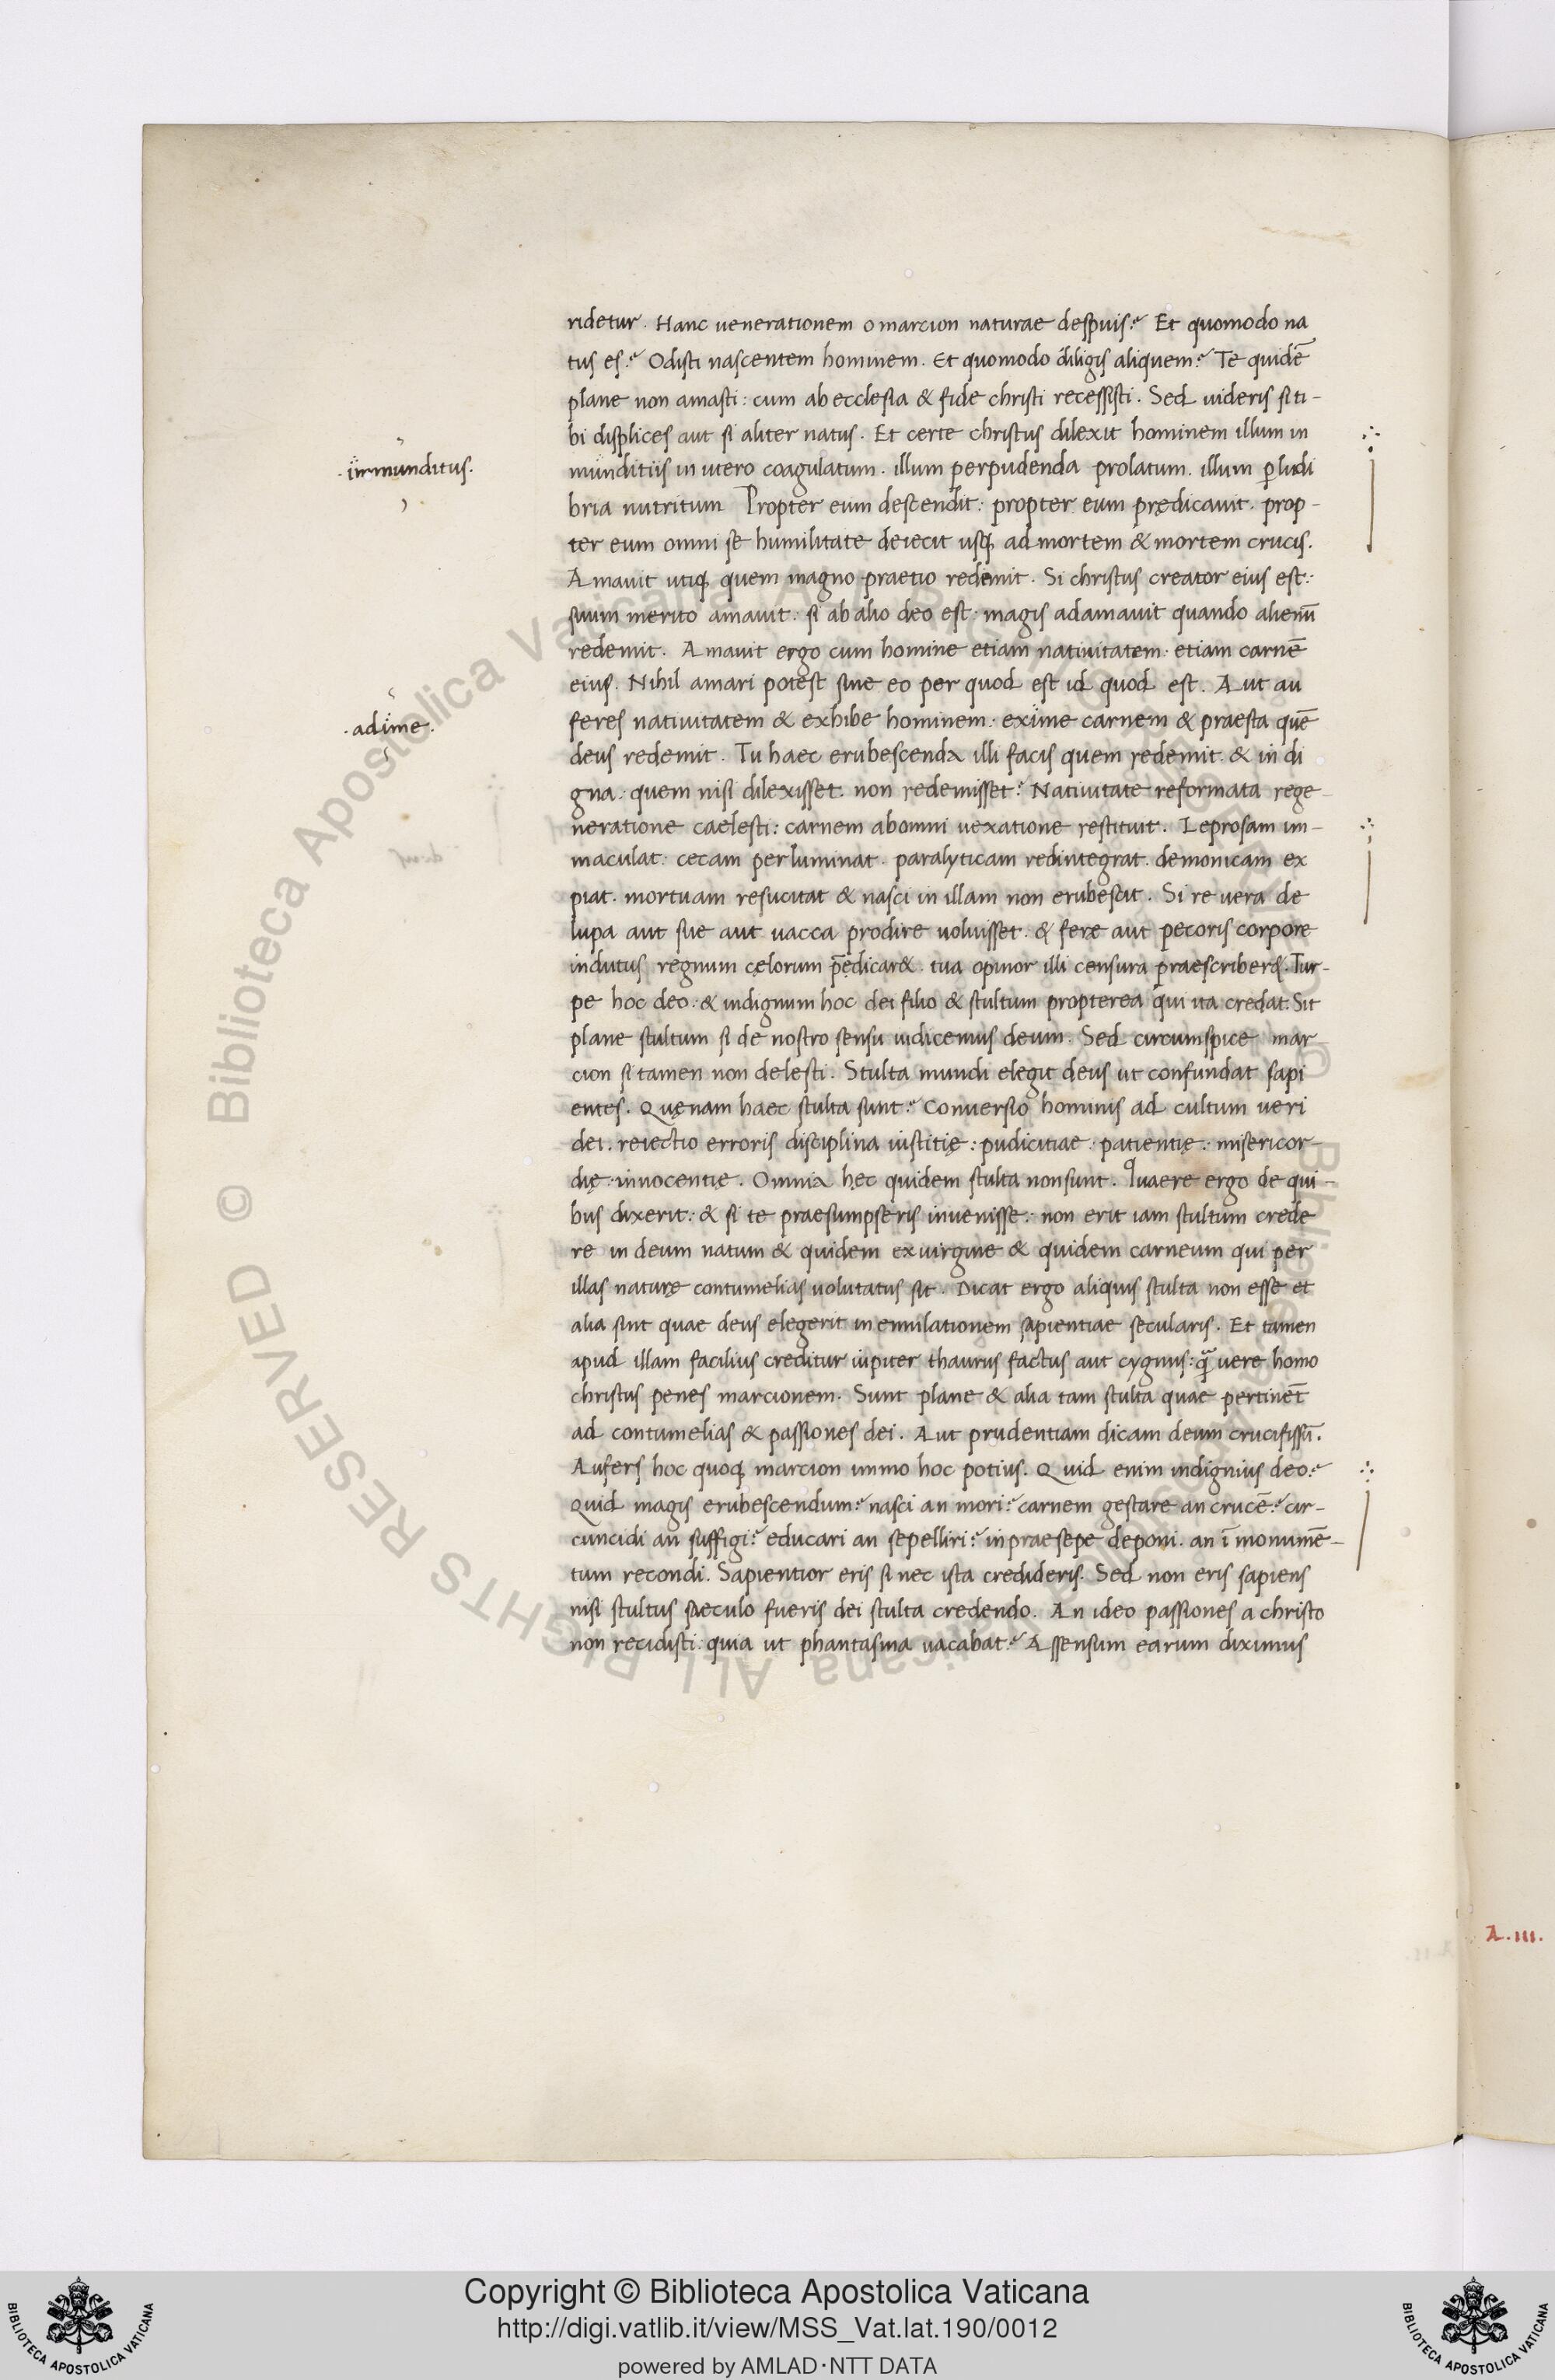 ridetur. Hanc uenerationem o marcion naturae despuis? Et quomodo na
tus es? Odisti nascentem hominem. Et quomodo diligis aliquem? Te quidē
plane non amasti: cum ab ecclesia & fide christi recessisti. Sed uideris si ti-
bi displices aut si aliter natus. Et certe christus dilexit hominem illum in
·immunditus.
munditiis in utero coagulatum. illum per pudenda prolatum. illum ꝑ ludi
bria nutritum Propter eum descendit: propter eum prędicauit. prop-
ter eum omni se humilitate deiecit usq; ad mortem & mortem crucis.
Amauit utiq; quem magno praetio redemit. Si christus creator eius est:
suum merito amauit: si ab alio deo est. magis adamauit quando alienū
redemit. Amauit ergo cum homine etiam natiuitatem. etiam carnē
eius. Nihil amari potest sine eo per quod est id quod est. Aut au
·adime.
feres natiuitatem & exhibe hominem: exime carnem & praesta quē
deus redemit. Tu haec erubescenda illi facis quem redemit. & in di
gna: quem nisi dilexisset. non redemisset? Natiuitate reformata rege-
neratione caelesti: carnem ab omni uexatione restituit. Leprosam im-
maculat: cecam perluminat. paralyticam redintegrat. demonicam ex
piat. mortuam resucitat & nasci in illam non erubescit. Si re uera de
lupa aut sue aut uacca prodire uoluisset. & ferę aut pecoris corpore
indutus regnum cęlorum p̄ędicar&. tua opinor illi censura praescriber&. Tur-
pe hoc deo: & indignum hoc dei filio & stultum propterea q̄ui ita credat. Sit
plane stultum si de nostro sensu iudicemus deum. Sed circumspice mar-
cion si tamen non delesti. Stulta mundi elegit deus ut confundat sapi
entes. Quęnam haec stulta sunt? Conuersio hominis ad cultum ueri
dei. reiectio erroris disciplina iustitię: pudicitiae: patientię: misericor-
dię: innocentię. Omnia hęc quidem stulta non sunt. Quaere ergo de qui-
bus dixerit: & si te praesumpseris inuenisse: non erit iam stultum crede
re in deum natum & quidem ex uirgine & quidem carneum qui per
illas naturę contumelias uolutatus sit. Dicat ergo aliquis stulta non esse et
alia sint quae deus elegerit in emulationem sapientiae secularis. Et tamen
apud illam facilius creditur iupiter thaurus factus aut cygnus: quā uere homo
christus penes marcionem. Sunt plane & alia tam stulta quae pertinēt
ad contumelias & passiones dei. Aut prudentiam dicam deum crucifissū.
Aufers hoc quoq; marcion immo hoc potius. Quid enim indignius deo?
Quid magis erubescendum? nasci an mori? carnem gestare an crucē? cir-
cuncidi an suffigi? educari an sepelliri? in praesepe deponi. an ī monumē-
tum recondi. Sapientior eris si nec ista credideris. Sed non eris sapiens
nisi stultus saeculo fueris dei stulta credendo. An ideo passiones a christo
non recidisti: quia ut phantasma uacabat? Assensum earum diximus
A.III.
Copyright © Biblioteca Apostolica Vaticana
http://digi.vatlib.it/view/MSS_Vat.lat.190/0012
powered by AMLAD·NTT DATA
BIBLIOTECA APOSTOLICA VATICANA
BIBLIOTECA APOSTOLICA VATICANA
© Biblioteca Apostolica Vaticana ALL RIGHTS RESERVED